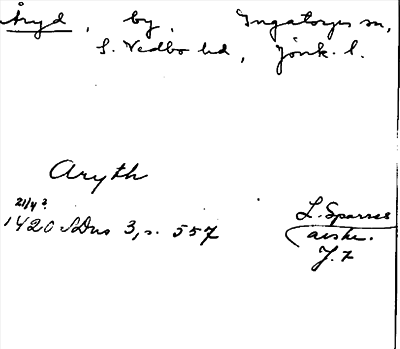 Åryd, by, Ingatorps sn,
S. Vedbo hd, Jönk. l.
Aryth
21/4 ?
1420 SDns 3, s. 557
L. Sparres
arkiv.
J. 7